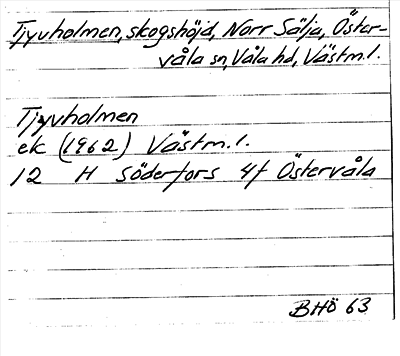 Tjyvholmen, skogshöjd, Norr Sälja, Öster-
våla sn, Våla hd, Västm.l.
Tjyvholmen
ek (1962) Västm.l.
12 H Söderfors 4f Östervåla
BHÖ 63